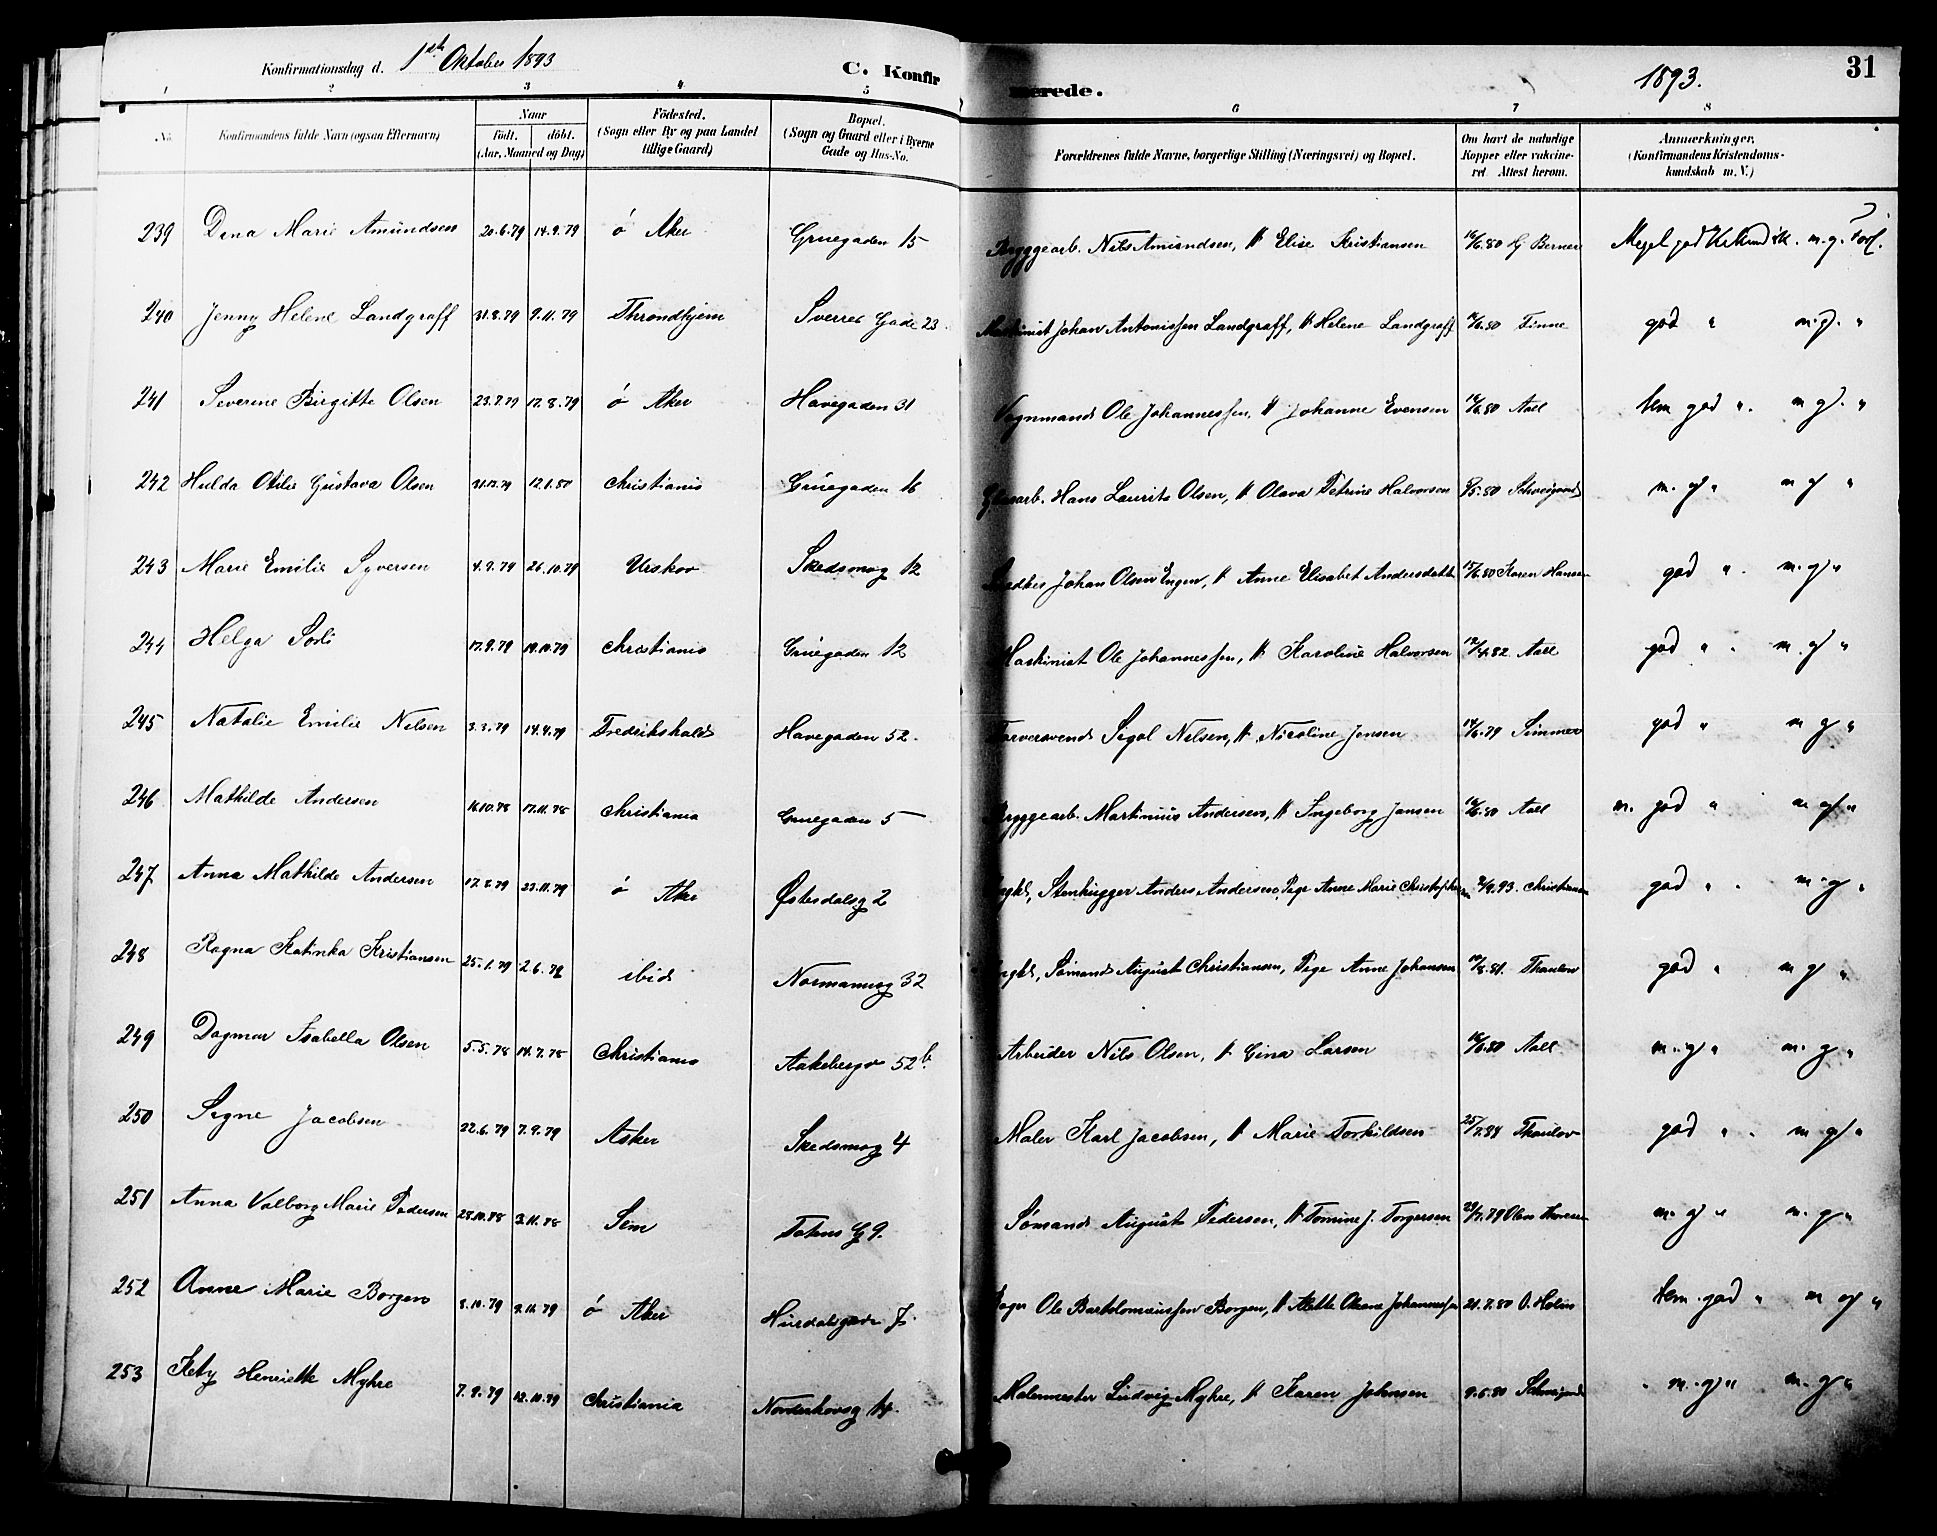 Konfirmationsdag d. 1ste Oktober 1893 C. Konfirmerede. 1893. 31
1 2 3 4 5 6 7 8
No. Konfirmandens fulde Navn (ogsaa Efternavn) Naar födt. döbt. (Aar, Maaned og Dag) Födested. (Sogn eller By og paa Landet tillige Gaard) Bopæl. (Sogn og Gaard eller i Byerne Gade og Hus-No. Forældrenes fulde Navne, borgerlige Stilling (Næringsvei) og Bopæl. Om havt de naturlige Kopper eller vakcineret. Attest herom. Anmærkninger. (Konfirmandens Kristendomskundskab m. V.)
239 Dina Marie Amundsen 20.6.79 14.9.79 ö Aker Gruegaden 15 Bryggearb. Nils Amundsen, H Elise Kristiansen 16/6.80 Hj Berner Meget god Kr.kundsk. m. g. Forh.
240 Jenny Helene Landgraff 31.8.79 9.11.79 Throndhjem Sverres Gade 23 Maskinist Johan Antonissen Landgraff, H Helene Landgraff /6.80 Finne god " m. g. "
241 Severine Birgitte Olsen 23.7.79 17.8.79 ö Aker Havegaden 31 Vognmand Ole Johannessen, H Johanne Evensen 16/6.80 Aall tem god ". m g. "
242 Hulda Otilie Gustava Olsen 31.12.79 12.1.80 Christiania Gruegaden 16 Glasarb. Hans Laurits Olsen, H Olava Petrine Halvorsen /5.80 Schweigaard m. g " m g "
243 Marie Emilie Syversen 4.9.79 26.10.79 Urskov Skedsmog 12 Johan Olsen Engen, H Anne Elisabet Andersdatter /6.80 Karen Hansen god " m. g "
244 Helga Sorli 17.9.79 19.10.79 Christiania Gruegaden 12 Maskinist Ole Johannessen, H Karoline Halvorsen /4.82 Aall god " m. g "
245 Natalie Emilie Nilsen 3.3.79 14.4.79 Fredrikshald Havegaden 52. Farversvend Segol Nilsen, H Nicoline Jensen 14/6.79 Simmer god " m g "
246 Mathilde Andersen 16.10.78 17.11.78 Christiania Gruegaden 5 Bryggearb. Martinius Andersen, H Ingeborg Jansen 16/6.80 Aall m. god " m g "
247 Anna Mathilde Andersen 17.8.79 23.11.79 ö Aker Østerdalsg 2 Ungkl, Stenhugger Anders Andersen, Pige Anne Marie Christophersen /9.93. Christiansen god " m. g "
248 Ragna Katinka Kristiansen 25.1.79 2.6.79 ibid Normannsg 32 Ungkl, Sömand August Christiansen, Pige Anne Johansen 10/8.81. Thaulow god " m g "
249 Dagmar Isabella Olsen 5.5.78 14.7.78 Christiania Aakebergv 52b. Arbeider Nils Olsen, H Gina Larsen 16/6.80 Aall m. g " m. g "
250 Signe Jacobsen 22.6.79 7.9.79 Asker Skedsmog 4 Maler Karl Jacobsen, H Marie Torkildsen 25/7.84 Thaulow god " m g "
251 Anna Valborg Marie Pedersen 28.10.78 3.11.78 Sem Totens G 9. Sömand August Pedersen, H Tomine J. Torgersen 29/7.79 Olaus Thoresen m. g " m. g "
252 Anne Marie Borgen 8.10.79 9.11.79 ö Aker Hurdalsgaden 7. Ole Bartolomæussen Borgen, H Mette Oleane Johannessen 21.7.80 O. Holm tem. god " m g "
253 Kety Henriette Myhre 7.9.79 12.10.79 Christiania Norderhovsg 14. Malermester Ludvig Myhre, H Karen Johnsen 9.6.80 Schweigaard m. g " m. g "